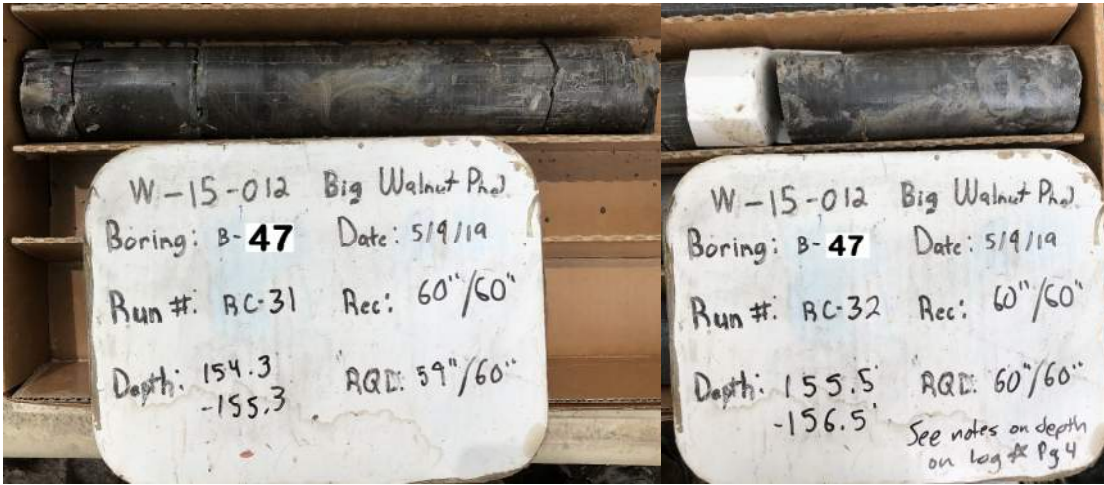 W-15-012 Big Walnut Ph2
Boring: B-47 Date: 5/9/19
Run #: RC-31 Rec: 60"/60"
Depth: 154.3 RQD: 59"/60"
-155.3
W-15-012 Big Walnut Ph2
Boring: B-47 Date: 5/9/19
Run #: RC-32 Rec: 60"/60"
Depth: 155.5' RQD: 60"/60"
-156.5'
See notes on depth
on log Pg 4